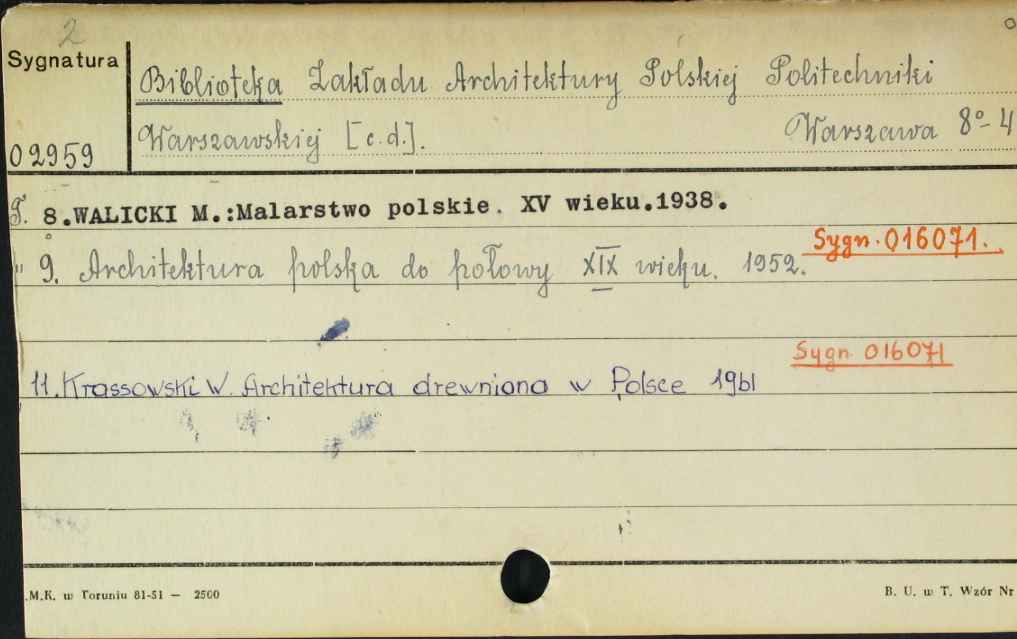 2
Sygnatura
Biblioteka Zakładu Architektury Polskiej Politechniki
Warszawskiej [c.d.]. Warszawa 8°-4
02959
T. 8.WALICKI M.:Malarstwo polskie. XV wieku.1938.
Sygn. 016071.
" 9. Architektura polska do połowy XIX wieku. 1952.
Sygn 016071
11. Krassowski W. Architektura drewniana w Polsce 1961
.M.K. w Toruniu 81-51 — 2500
B. U. w T. Wzór Nr